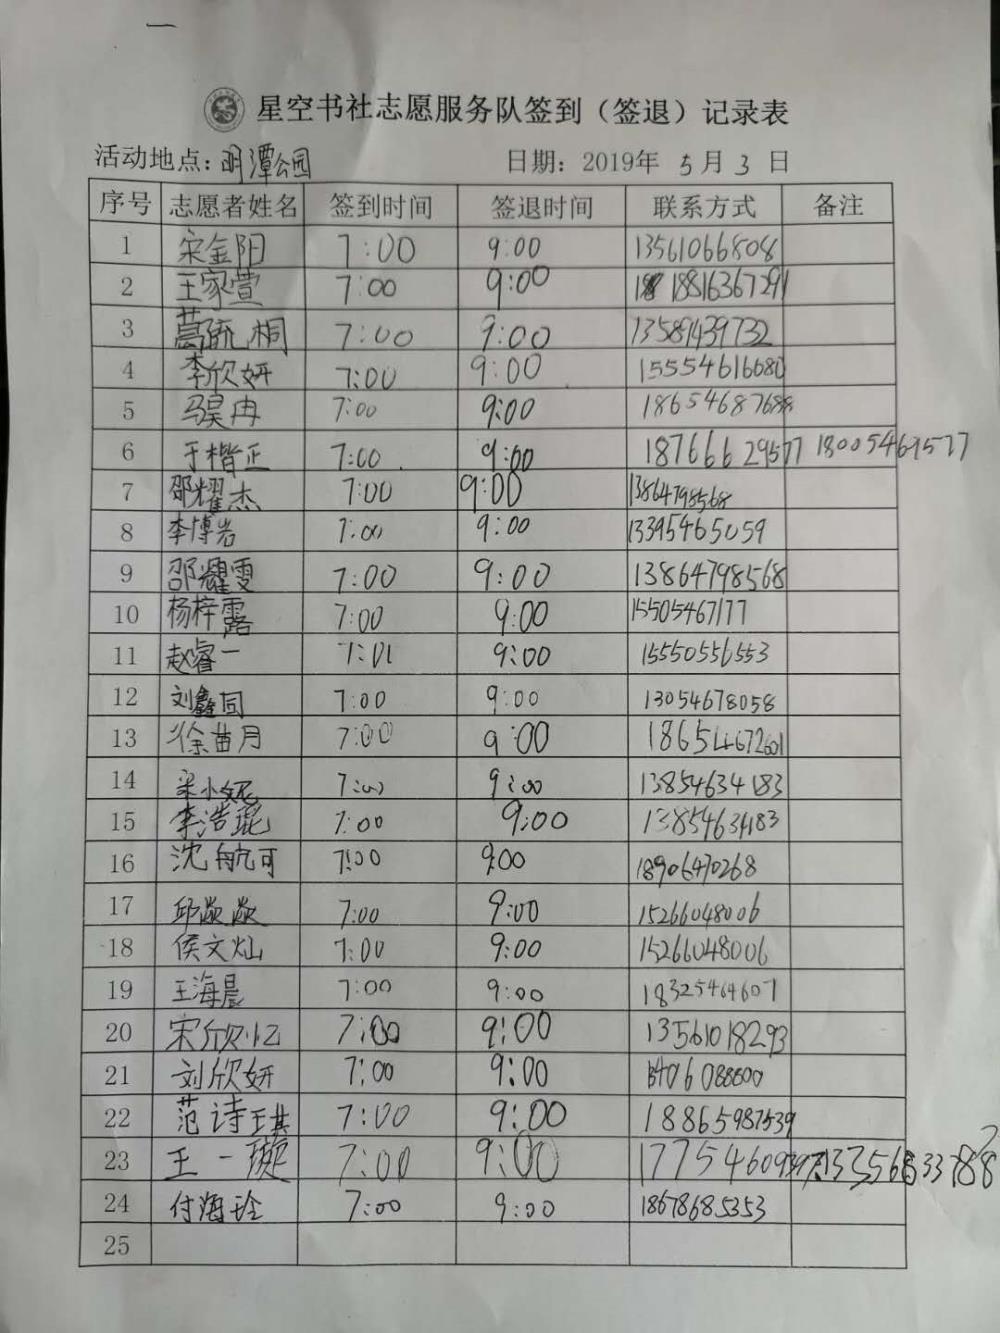 星空书社志愿服务队签到（签退）记录表
活动地点：明潭公园 日期：2019年 5 月 3 日
序号 志愿者姓名 签到时间 签退时间 联系方式 备注
1 宋金阳 7:00 9:00 13561066808
2 王家萱 7:00 9:00 18816367291
3 葛疏桐 7:00 9:00 13589439732
4 李欣妍 7:00 9:00 15554616680
5 马昊冉 7:00 9:00 18654687688
6 于楷正 7:00 9:00 18766629577 18005469577
7 邵耀杰 7:00 9:00 13864798568
8 李博岩 7:00 9:00 13395465059
9 邵耀雯 7:00 9:00 13864798568
10 杨梓露 7:00 9:00 15505467177
11 赵睿一 7:01 9:00 15550556553
12 刘鑫同 7:00 9:00 13054678058
13 徐苗月 7:00 9:00 18654672601
14 宋小妮 7:00 9:00 13854634183
15 李浩琨 7:00 9:00 13854634183
16 沈航可 7:00 9:00 18906470268
17 邱焱焱 7:00 9:00 15266048006
18 侯文灿 7:00 9:00 15266048006
19 王海晨 7:00 9:00 18325464607
20 宋欣忆 7:00 9:00 13561018293
21 刘欣妍 7:00 9:00
22 范诗琪 7:00 9:00 18865987539
23 王一璇 7:00 9:00
24 付海玲 7:00 9:00 18678685353
25